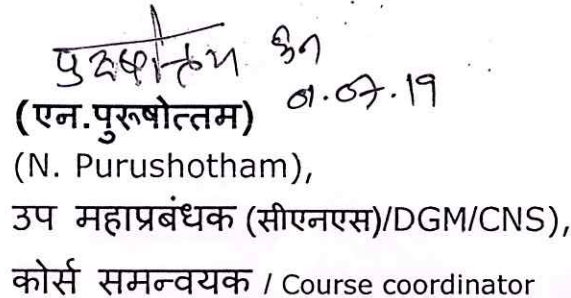 01.07.19
(एन.पुरूषोत्तम)
(N. Purushotham),
उप महाप्रबंधक (सीएनएस)/DGM/CNS),
कोर्स समन्वयक / Course coordinator